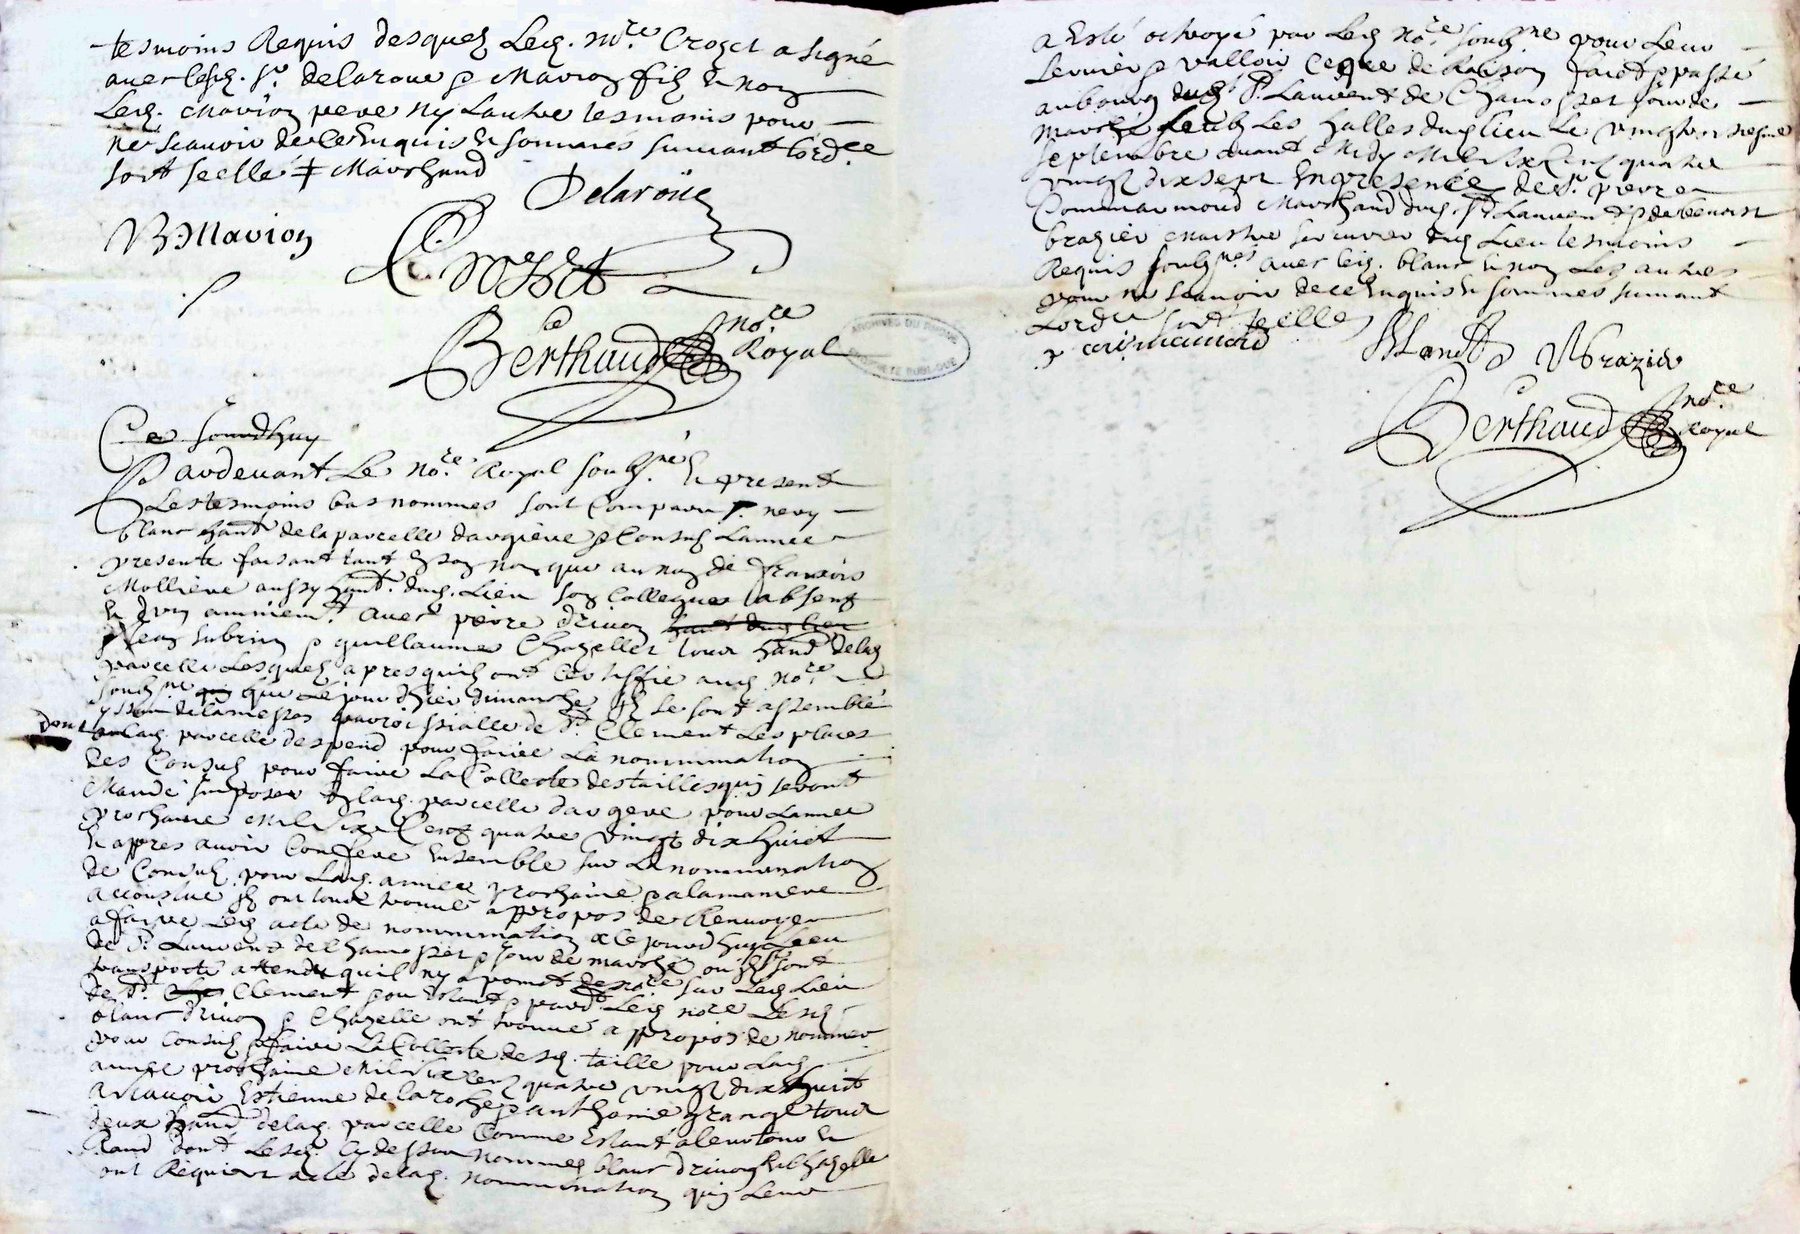 tesmoins Requis desquelz Led. no.re Crozet a signé
avec lesd. Sr. delaroue & Mavion filz & non
Led. Mavion pere ny Lautre tesmoins pour
ne scavoir de ce Enquis & sommés suivant lord.ce
soit scellé ‡ Marchand
Delaroüe
B. Mavion
Crozet
Berthaud no.re
Royal
ARCHIVES DU RHONE
Ce Jourdhuy
Pardevant Le no.re Royal soubz.né & present
Les tesmoins bas nommés sont Comparu Sr. nery
blanc hant. de la parcelle dargiere & Consul Lannee
presente faisant tant En son nom que au nom de françois
Molliere aussy hant. dud. Lieu son Collegue absent
& dun amniemt. avec pierre drivon hant dud lieu
Jean subrin & guillaume Chazelles tous hand delad
parcelle Lesquelz apres quilz ont Certiffié aud no.re
soubz.né que Le jour dhier dimanche ilz se sont assemblé
yssue de la messe parroissialle de St. Clement Les places
dont lad. parcelle despend pour faire La nommination
des Consulz pour faire La Collecte des tailles qui seront
Mandé Imposer En lad. parcelle dargere pour Lannee
prochaine Mil Six Centz quatre vingtz dix huict
& appres avoir Conferé Ensemble sur La nommination
de Consulz pour Lad. annee prochaine & a la maniere
accoustuée ilz ont tous trouvé appropos de Renvoyer
affaire Led acte de nommination a Ce jourdhuy Lieu
de St. Laurens de Chamosset & jour de marché ou ilz sont
transporté attendu quil ny a point de no.re sur Led Lieu
de St. Clement & ou Estant & pard.t Led no.re Lesd
blanc drivon & Chazelle ont trouvé appropos de nommer
pour Consulz & faire La Collecte desd. taille pour Lad
annee prochaine Mil Six centz quatre vingtz dix huict
a scavoir Estienne delaroche & anthoine grange tous
deux hand delad. parcelle Comme Estant a leur tour &
Rand dont Lesd. Cy dessus nommés blanc drivon & Chazelle
ont Requis acte delad. nommination quy Leur
a Esté octroyé par Led no.re soubz.né pour Leur
servir & valloir Ce que de Raison faict & passé
au bourg dud St. Laurent de Chamosset jour de
marché soubz Les halles dud lieu Le vingt troisiesme
septembre avant Midy Mil Six Centz quatre
vingtz dix sept En presence de Sr. pierre
Commarmond Marchand dud St. Laurent & de benoist
brazier Maistre serrurier dud Lieu tesmoins
Requis soubz.nés avec led. blanc & non Les autres
pour ne scavoir de ce Enquis & sommés suivant
Lord.ce soit scellé
Commarmond Blanc B brazier
Berthaud no.re
Royal